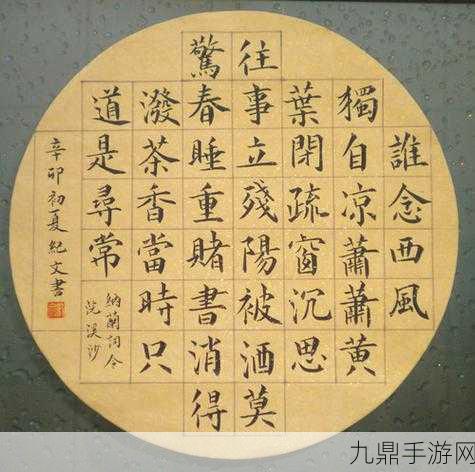 誰念西風
獨自凉蕭蕭黃
葉閉疏窗沉思
往事立殘陽被酒莫
驚春睡重賭書消得
潑茶香當時只
道是尋常
納蘭詞令
浣溪沙
辛卯初夏紀文書
九鼎手游网